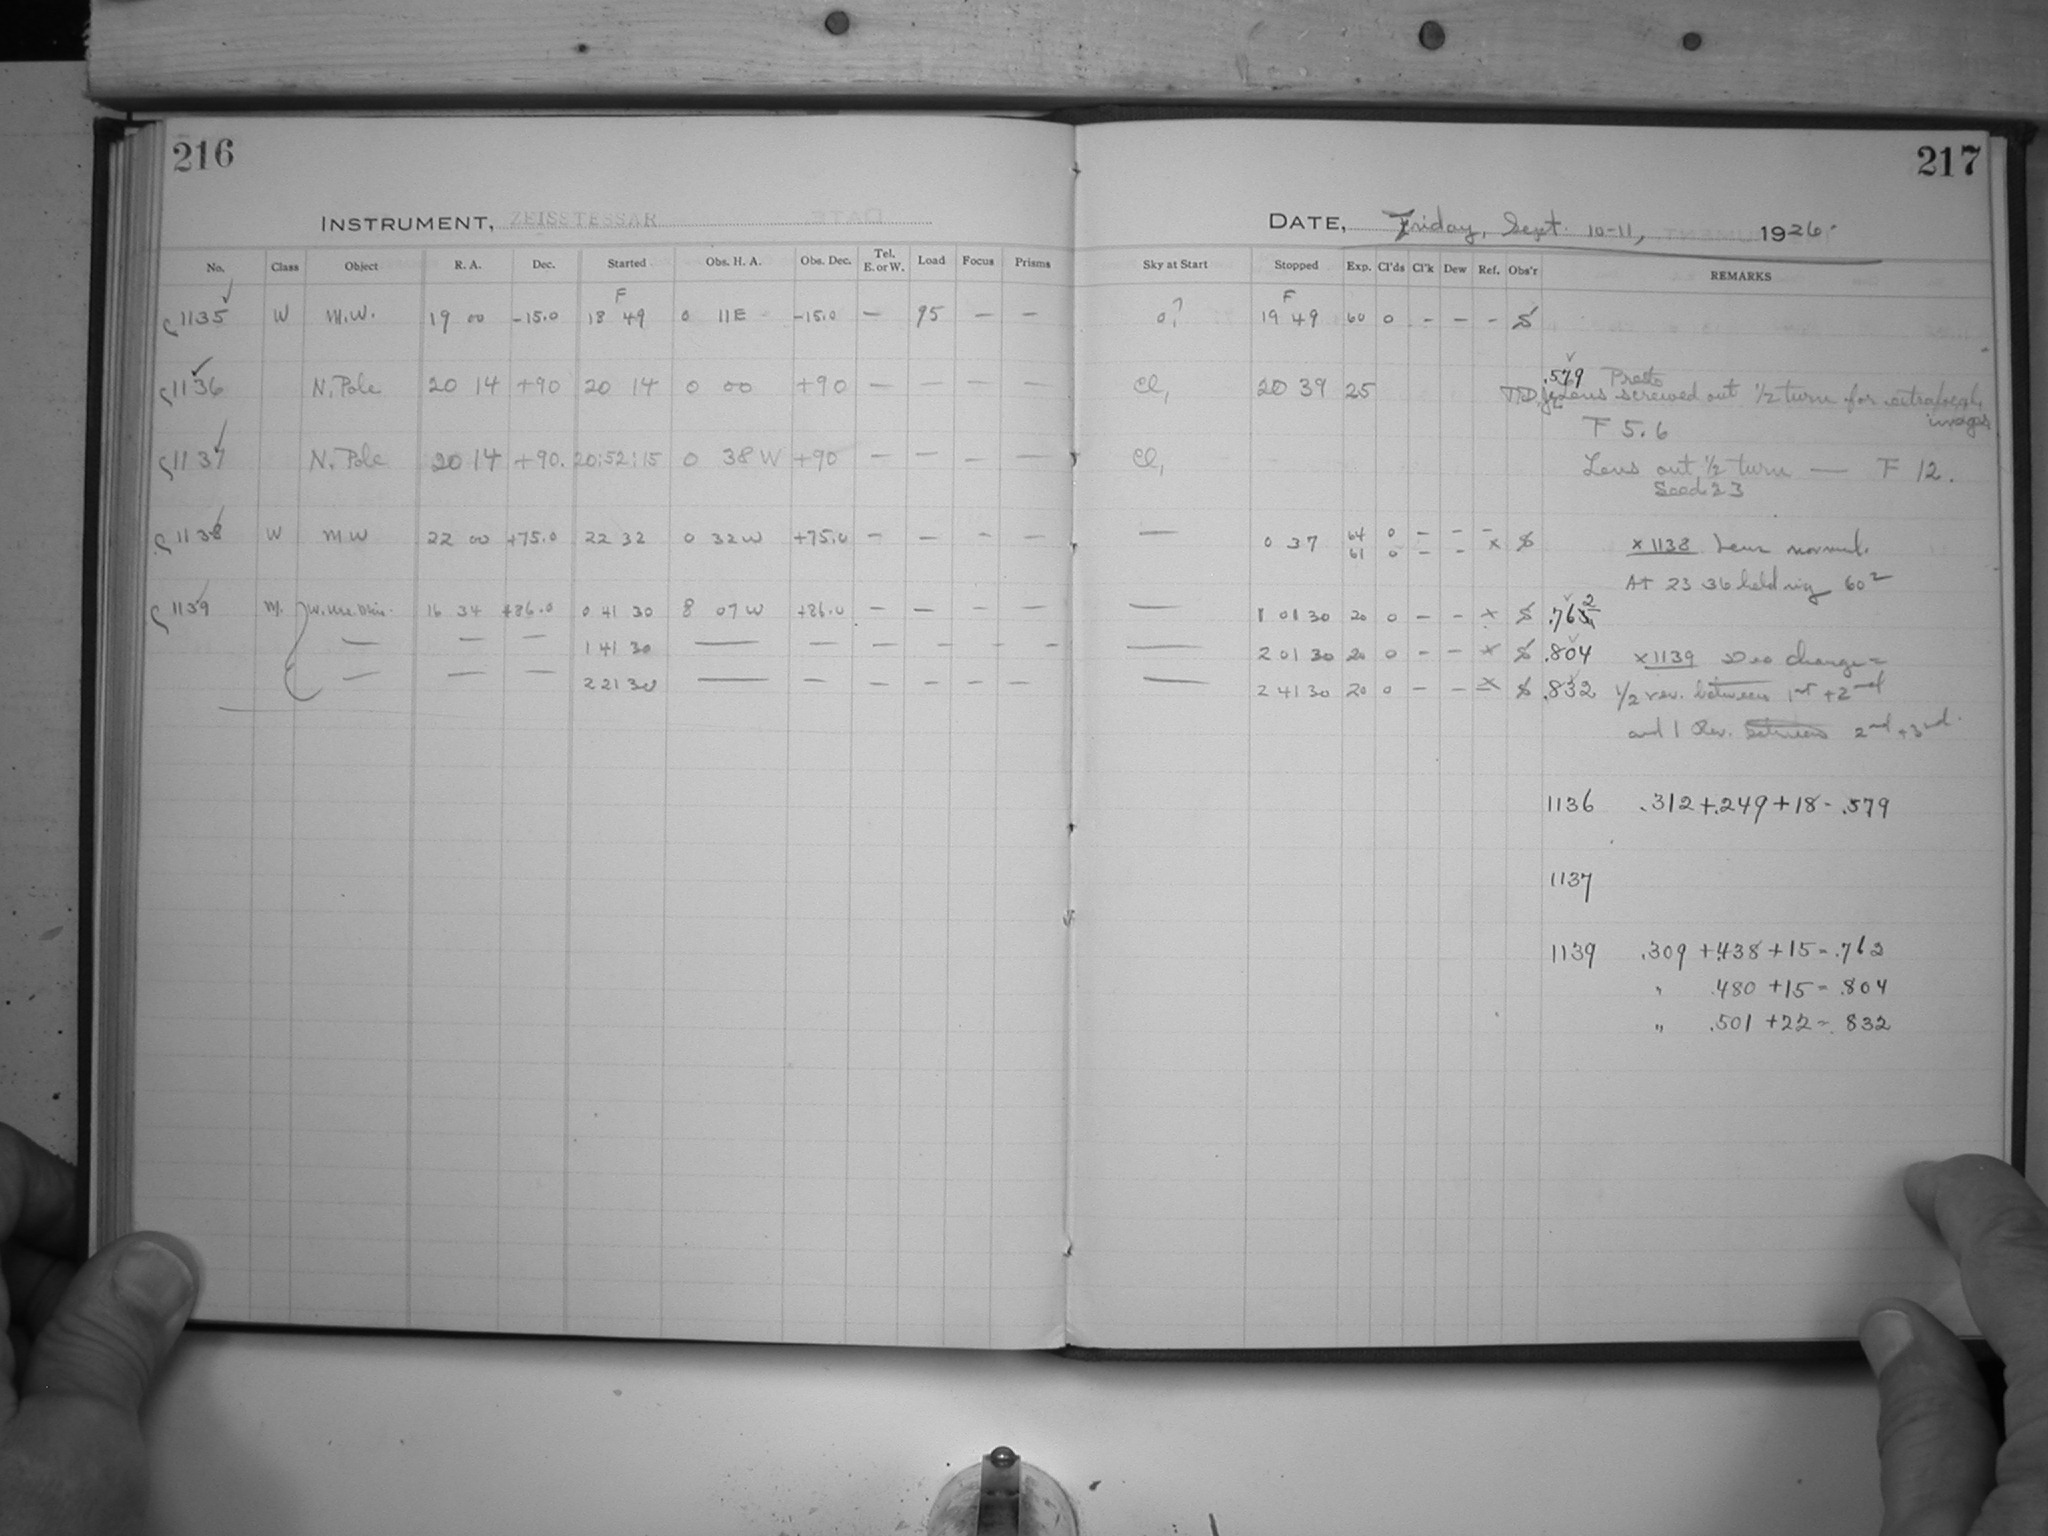 216
INSTRUMENT, ZEISSTESSAR
No. Class Object R. A. Dec. Started Obs. H. A. Obs. Dec. Tel. E. or W. Load Focus Prisms
1135 W M.W. 19 00 -15.0 F 18 49 0 11E -15.0 — 95 — —
1136 N. Pole 20 14 +90 20 14 0 00 +90 — — — —
1137 N. Pole 20 14 +90. 20:52:15 0 38 W +90 — — — —
1138 W MW 22 00 +75.0 22 32 0 32W +75.0 — — — —
1139 M. 16 34 +86.0 0 41 30 8 07 W +86.0 — — — —
— — — 1 41 30 — — — — — —
— — — 2 21 30 — — — — — —
217
DATE, Friday, Sept. 10-11, 1926.
Sky at Start Stopped Exp. Cl'ds Cl'k Dew Ref. Obs'r REMARKS
0,? F 19 49 60 0 - - - S
Cl, 20 39 25 .579 Presto
Lens screwed out 1/2 turn for extrafocal images
F 5.6
Cl, Lens out 1/2 turn — F 12.
Seed 23
— 0 37 64 0 - - -
61 0 - - x S x 1138 Lens normal.
At 23 36 60
— 1 01 30 20 0 - - x S .762
— 2 01 30 20 0 - - x S .804 x 1139 change =
— 2 41 30 20 0 - - x S .832 1/2 rev. between 1st + 2nd
and 1 Rev. between 2nd + 3rd.
1136 .312+.249+18=.579
1137
1139 .309 +.438 +15=.762
" .480 +15=.804
" .501 +22=.832